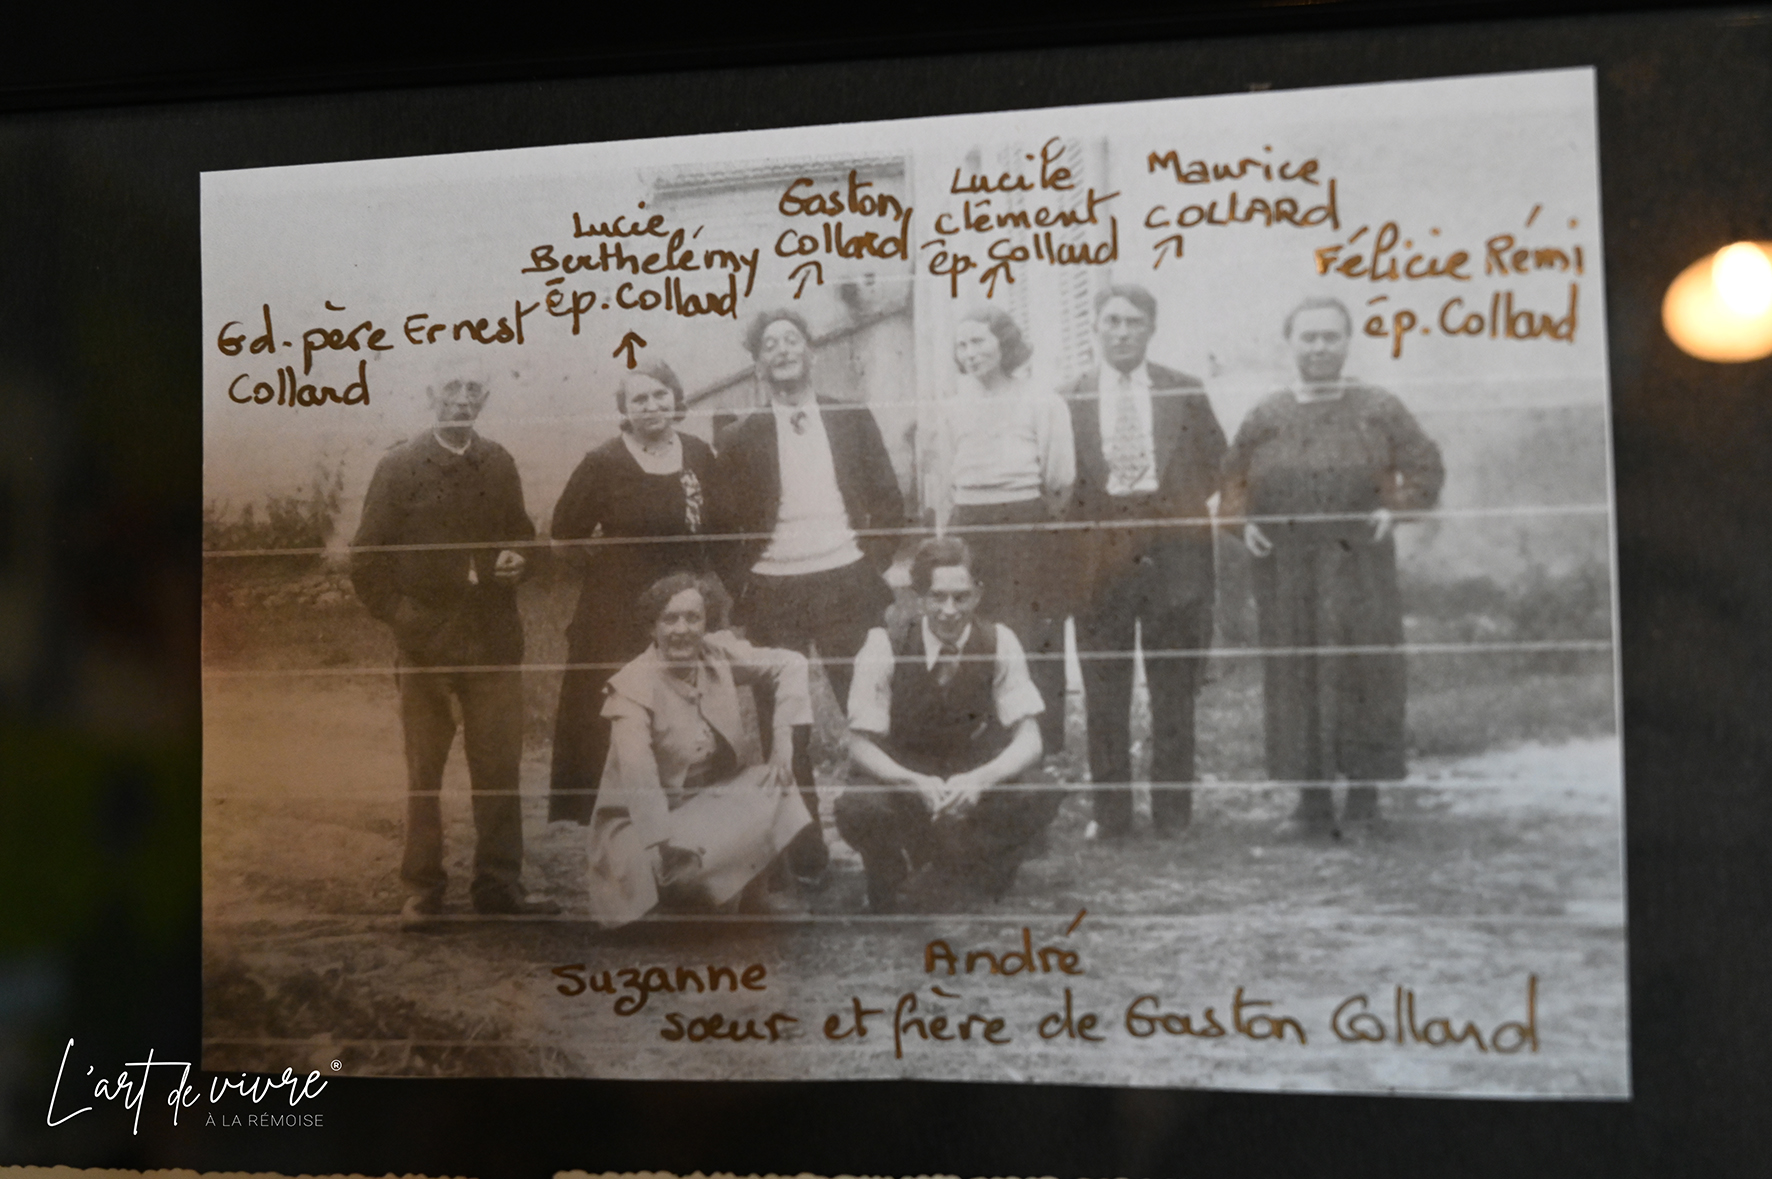 Gd-père Ernest
Collard
Lucie
Berthelémy
ép. Collard
Gaston
Collard
Lucile
Clément
ép. Collard
Maurice
COLLARD
Félicie Rémi
ép. Collard
Suzanne
André
sœur et frère de Gaston Collard
L'art de vivre®
À LA RÉMOISE